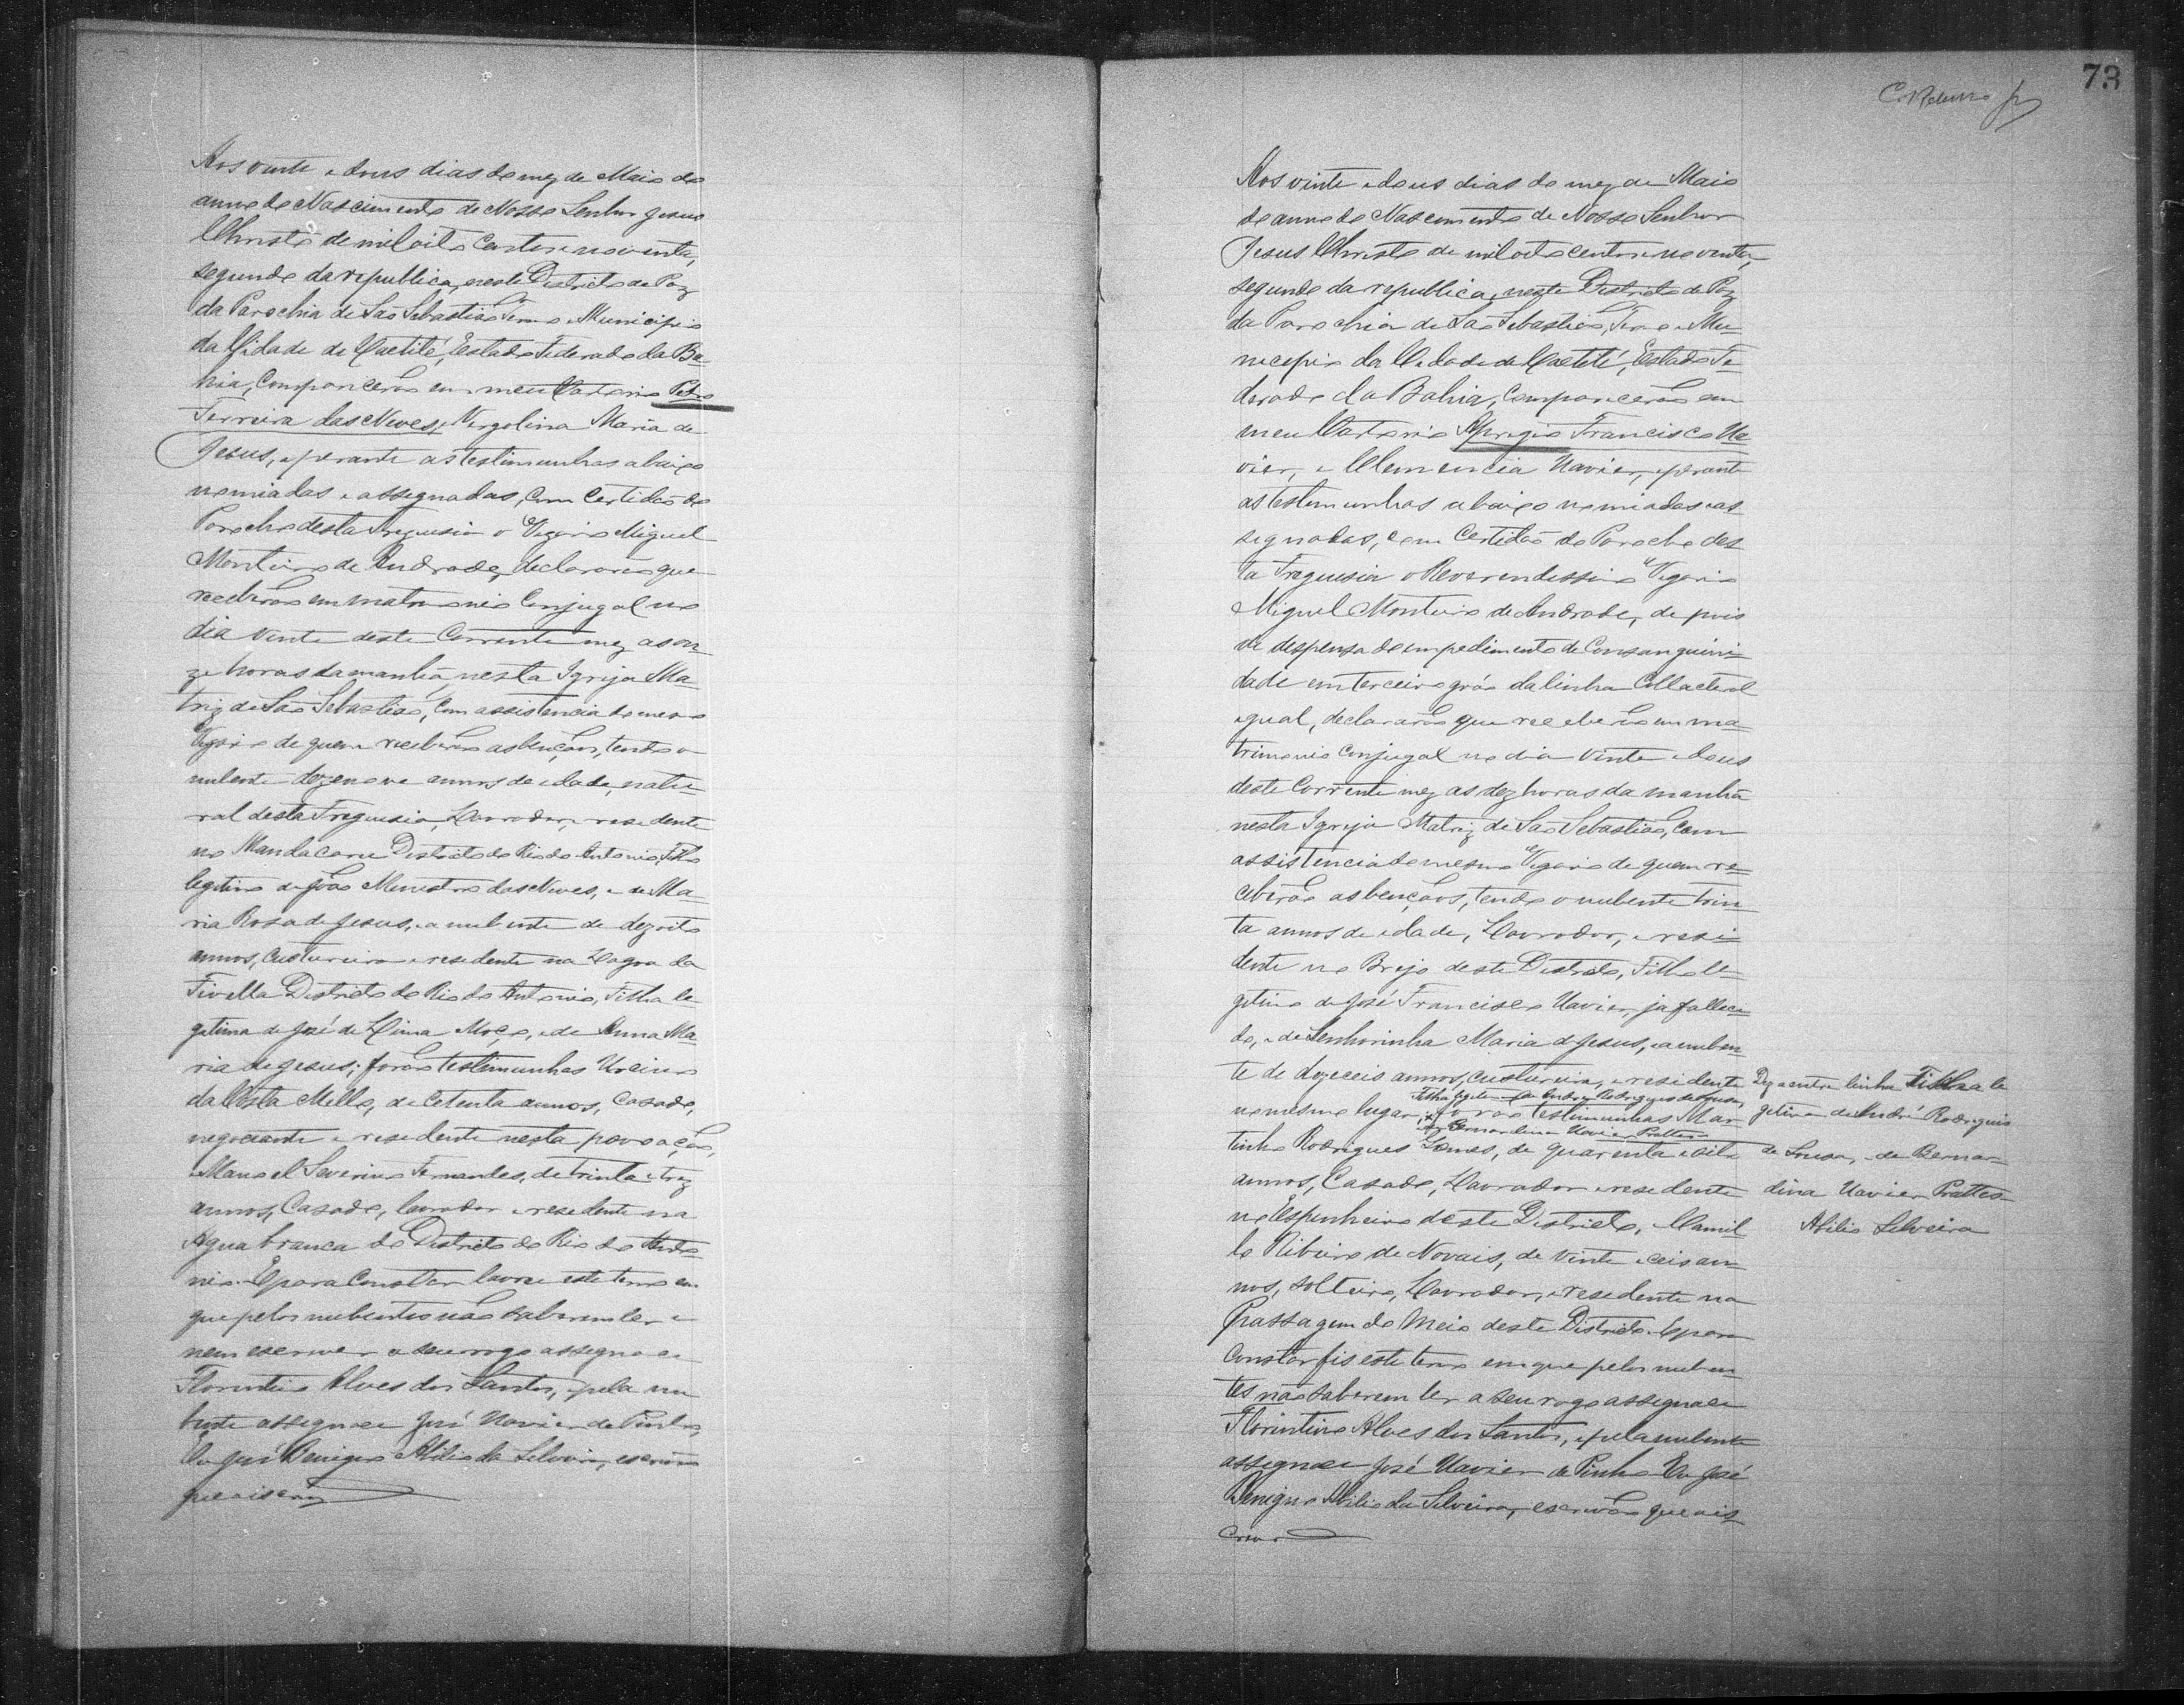 Aos vinte e dous dias do mez de Maio do
anno do Nascimento de Nosso Senhor Jesus
Christo de mil oito centos e noventa,
segundo da republica, neste Districto de Paz
da Parochia de São Sebastião Termo e Municipio
da Cidade de Caetité, Estado Federado da Ba-
hia, comparicerão em meu Cartorio Pedro
Ferreira das Neves, e Vergolina Maria de
Jesus, e perante as testimunhas abaixo
nomiadas e assegnadas, com certidão do
Parocho desta Freguesia o Vigario Miguel
Monteiro de Andrade, declararão que
receberão em matrimonio conjugal no
dia vinte deste corrente mez as on-
ze horas da manhã, nesta Igreja Ma-
triz de São Sebastião, com assistencia do mesmo
Vigario de quem receberão as bençãos, tendo o
nubente dezenove annos de idade, natu-
ral desta Freguesia, Lavrador, e residente
no Mandacaru Districto do Rio do Antonio, Filho
legitimo de João Ministro das Neves, e de Ma-
ria Rosa de Jesus, e a nubente de dezoito
annos, custureira e residente na Lagoa da
Fivella Districto do Rio do Antonio, Filha le-
gitima de José de Lima Moço, e de Anna Ma-
ria de Jesus; forão testimunhas Urcino
da Costa Mello, de cetenta annos, casado,
negociante e residente nesta povoação,
e Manoel Severino Fernandes, de trinta e trez
annos, casado, lavrador e residente na
Agua branca do Districto do Rio do Anto-
nio. E para constar lavrei este termo em
que pelos nubentes não saberem ler e
nem escrever a seu rogo assegnou
Florentino Alves dos Santos, e pela nu
bente assegnou José Xavier de Pinho,
Eu José Benigno Abilio da Silveira, escrivão
que o iscrevy
73
Aos vinte e dous dias do mez de Maio
do anno do Nascimento de Nosso Senhor
Jesus Christo de mil oito centos e noventa,
segundo da republica, neste Districto de Paz
da Parochia de São Sebastião, Termo e Mu-
nicipio da Cidade de Caetité, Estado Fe-
derado da Bahia, comparicerão em
meu Cartorio Aprigio Francisco Xa-
vier, e Clemencia Xavier, e perante
as testimunhas abaixo nomiadas e as
segnadas, com certidão do Parocho des
ta Freguesia o Reverendissimo Vigario
Miguel Monteiro de Andrade, de pois
da despensa do empedimento de Consanguini-
dade em terceiro gráo da linha Collacteral
egual, declararão que receberão em ma-
trimonio conjugal no dia vinte e dous
deste corrente mez as dez horas da manhã
nesta Igreja Matriz de São Sebastião, com
assistencia do mesmo Vigario de quem re-
ceberão as bençãos, tendo o nubente trin-
ta annos de idade, Lavrador, e resi-
dente no Brejo deste Districto, Filho le-
gitimo de José Francisco Xavier, ja falleci-
do, e de Senhorinha Maria de Jesus, e a nuben-
te de dezeceis annos, custureira, e residente
Filha legitima de André Rodrigues de Sousa,
no mesmo lugar; forão testimunhas Mar
e de Bernardina Xavier Prattes
tinho Rodrigues Gomes, de quarenta e oito
annos, Casado, Lavrador e residente
no Espinheiro deste Districto, e Camil
lo Ribeiro de Novais, de vinte e ceis an-
nos, solteiro, Lavrador, e residente na
Passagem do Meio deste Districto. E para
constar fis este termo em que pelos nuben-
tes não saberem ler a seu rogo assegnou
Florintino Alves dos Santos, e pela nubente
assegnou José Xavier de Pinho Eu José
Benigno Abilio da Silveira, escrivão que o is
crevi
Diz a entre linha Filha le
gitima de André Rodrigues
de Sousa, e de Bernar-
dina Xavier Prattes
Abilio Silveira